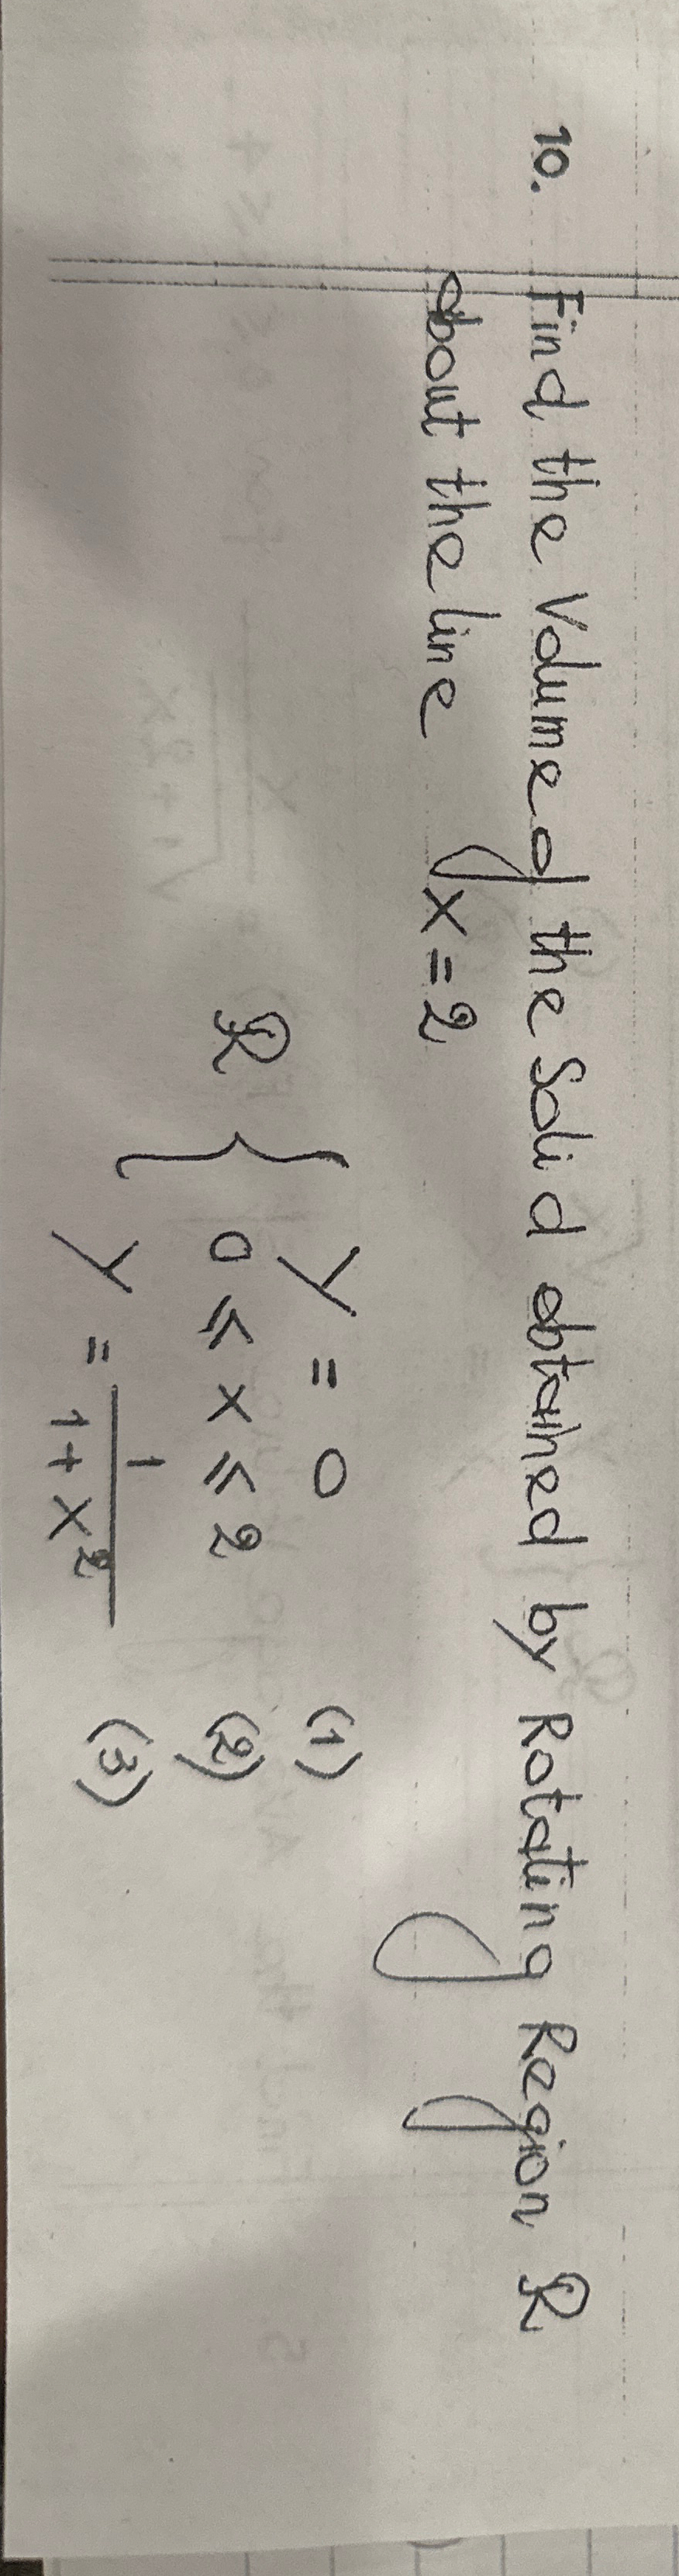 10. Find the Volume of the Solid obtained by Rotating Region R
about the line x = 2
R { y = 0 (1)
0 ≤ x ≤ 2 (2)
y = 1/(1 + x²) (3)